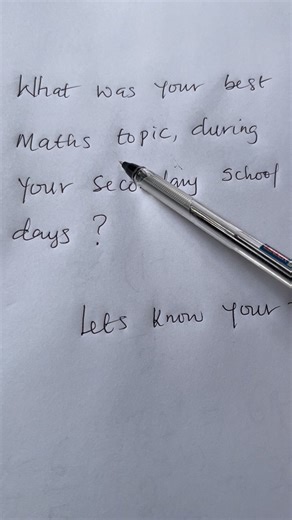 What was your best
Maths topic, during
your Secondary school
days ?
Lets know your